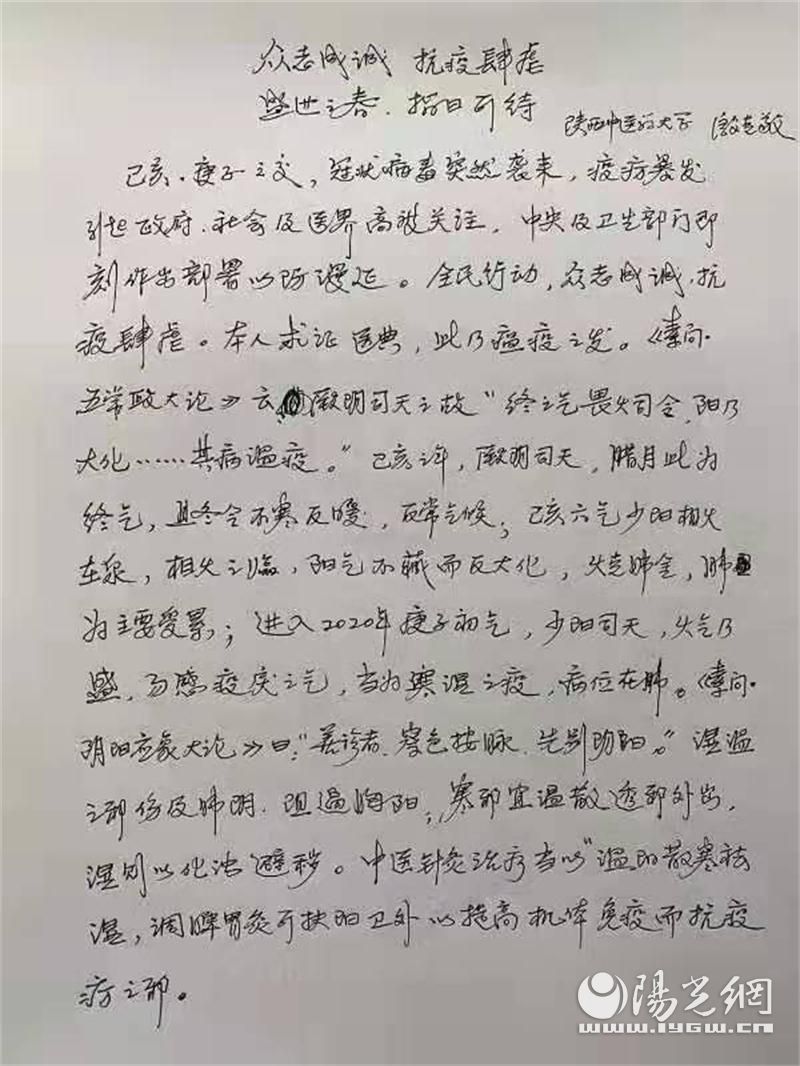 众志成诚 抗疫肆虐
盛世之春.指日可待
陕西中医药大学
己亥.庚子之交,冠状病毒突然袭来,疫疠暴发
引起政府.社会及医界高被关注,中央及卫生部门即
刻作出部署以防漫延。全民行动,众志成诚.抗
疫肆虐。本人求证医典,此乃瘟疫之发。《素问·
五常政大论》云 厥阴司天之故“终之气畏火司令,阳乃
大化……其病温疫。”己亥之年,厥阴司天,腊月此为
终气,且冬令不寒反暖,反常气候;己亥六气少阳相火
在泉,相火之临,阳气不藏而反大化,火克肺金,肺
为主要受累;进入2020年庚子初气,少阴司天,火气乃
盛,易感疫戾之气,当为寒湿之疫,病位在肺。《素问·
阴阳应象大论》曰:“善诊者.察色按脉.先别阴阳。”湿温
之邪伤及肺阴.阻遏胸阳;寒邪宜温散透邪外出,
湿则以化浊避秽。中医针灸治疗当以“温阳散寒祛
湿,调脾胃灸可扶阳卫外以提高机体免疫而抗疫
疠之邪。
陽光網
www.iygw.cn